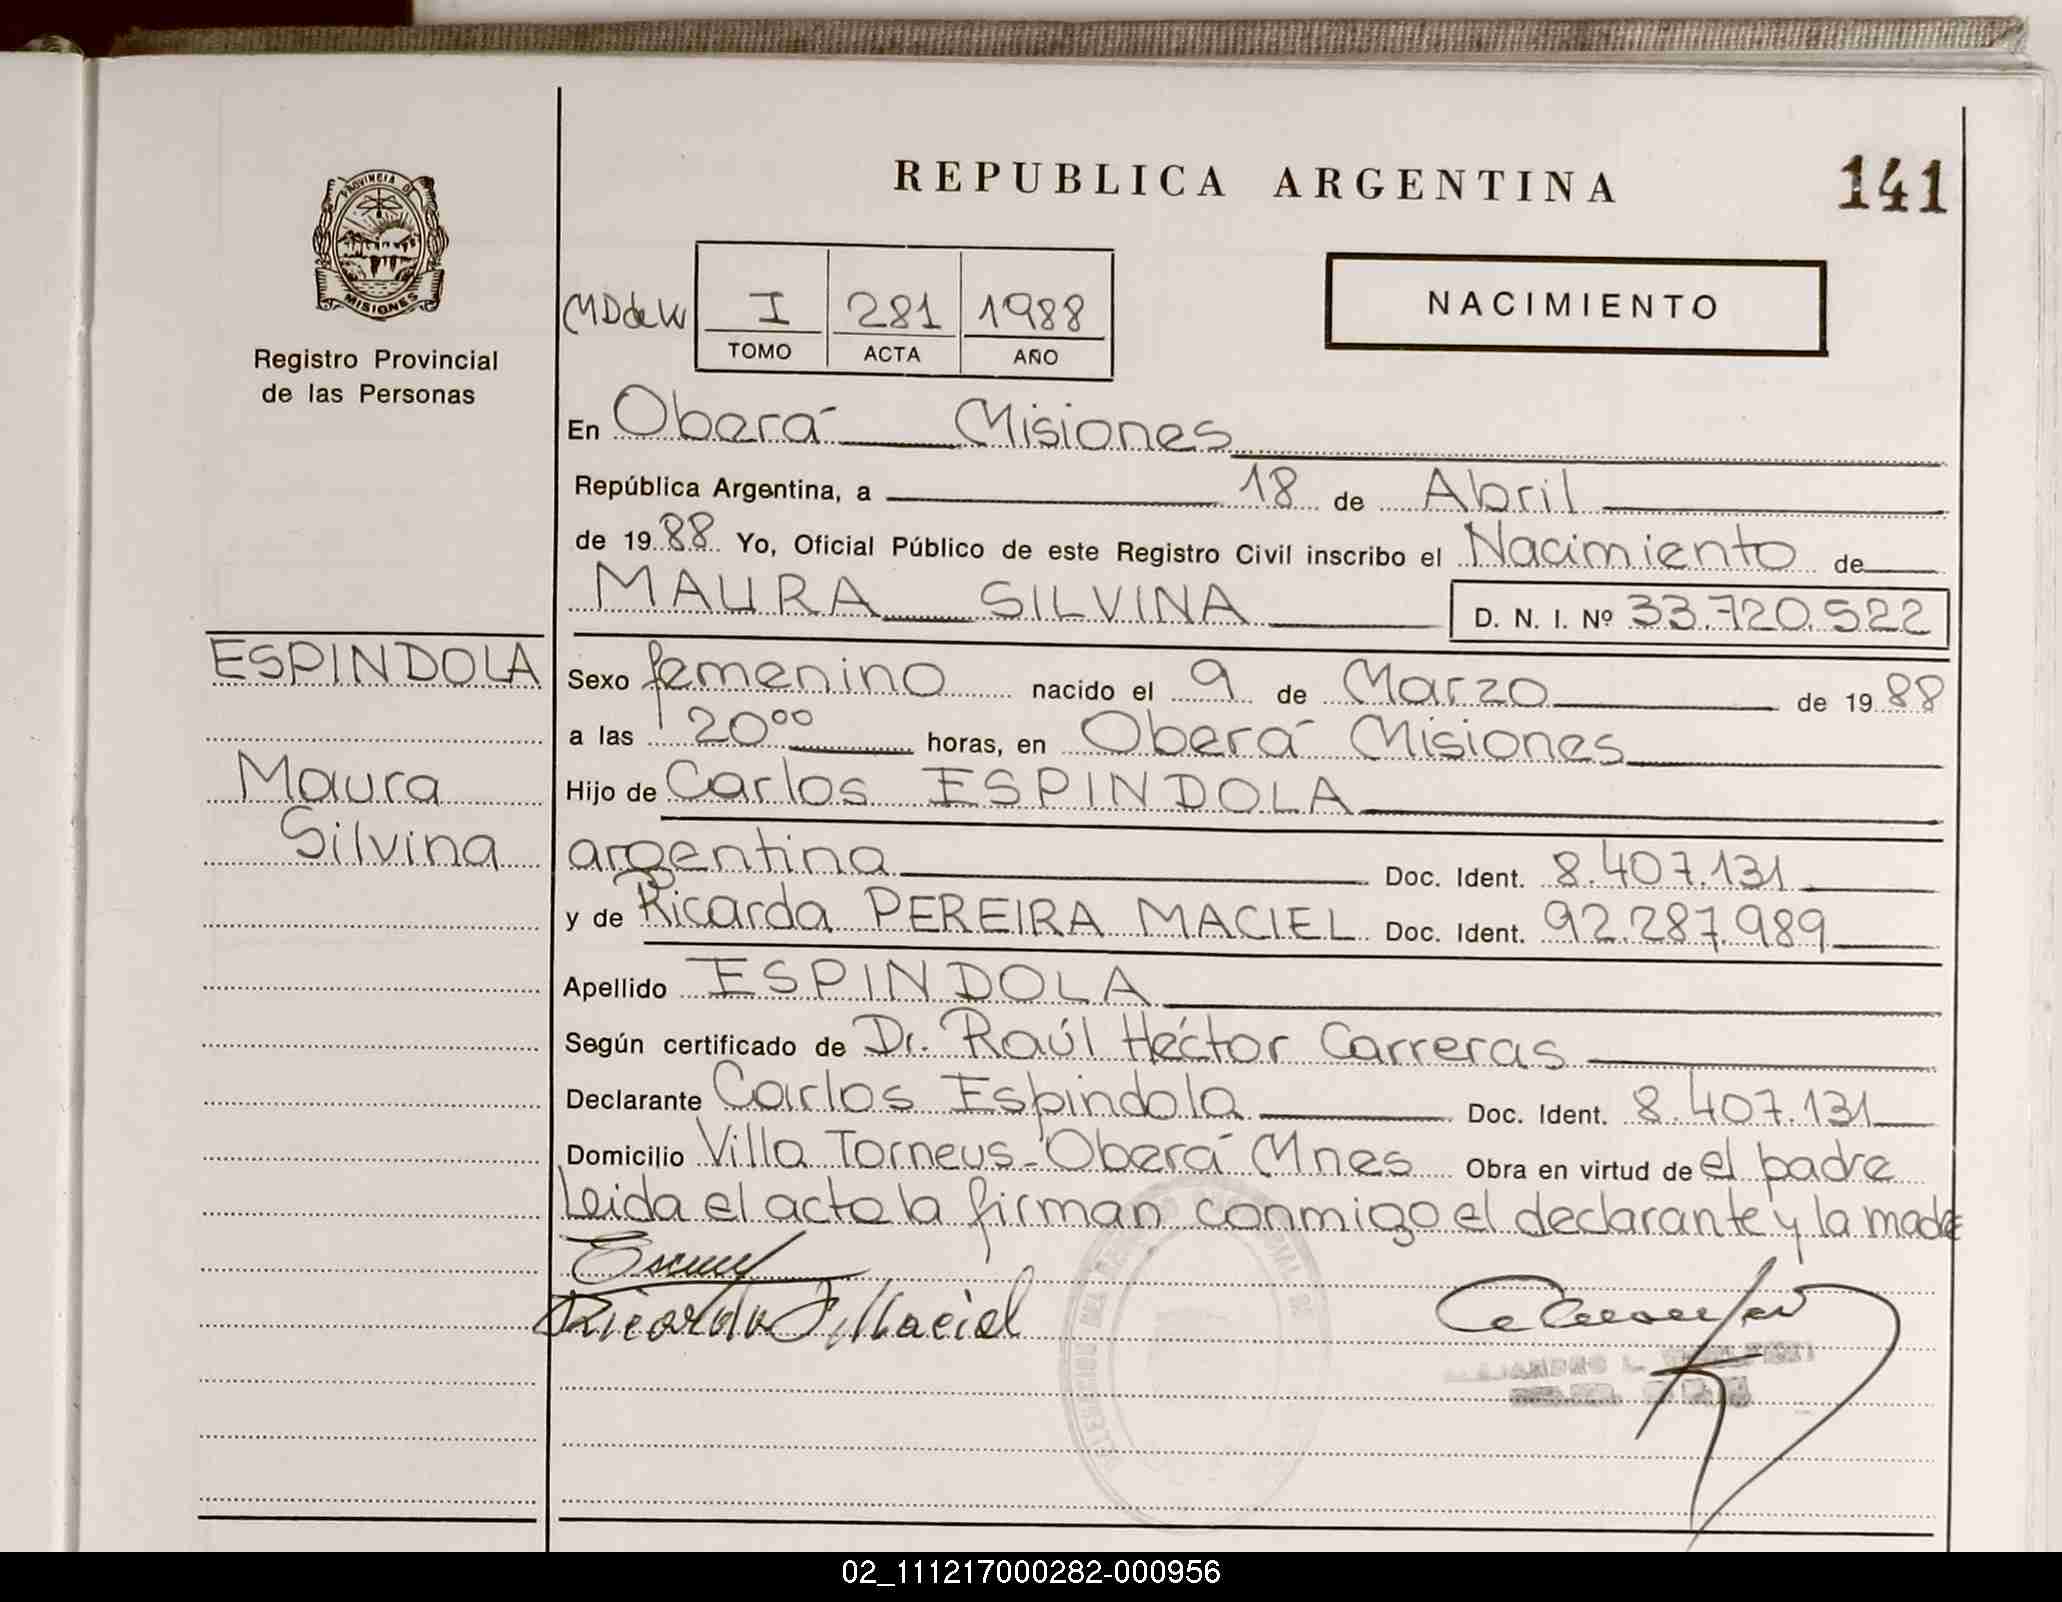 REPUBLICA ARGENTINA
141
PROVINCIA DE
MISIONES
Registro Provincial
de las Personas
NACIMIENTO
I 281 1988
TOMO ACTA AÑO
En Oberá Misiones
República Argentina, a 18 de Abril
de 1988 Yo, Oficial Público de este Registro Civil inscribo el Nacimiento de
MAURA SILVINA D. N. I. Nº 33.720.522
ESPINDOLA
Maura
Silvina
Sexo femenino nacido el 9 de Marzo de 1988
a las 20⁰⁰ horas, en Oberá Misiones
Hijo de Carlos ESPINDOLA
argentina Doc. Ident. 8.407.131
y de Ricarda PEREIRA MACIEL Doc. Ident. 92.287.989
Apellido ESPINDOLA
Según certificado de Dr. Raúl Héctor Carreras
Declarante Carlos Espindola Doc. Ident. 8.407.131
Domicilio Villa Torneus - Oberá Mnes Obra en virtud de el padre
Leida el acta la firman conmigo el declarante y la madre
Ricarda P Maciel
02_111217000282-000956